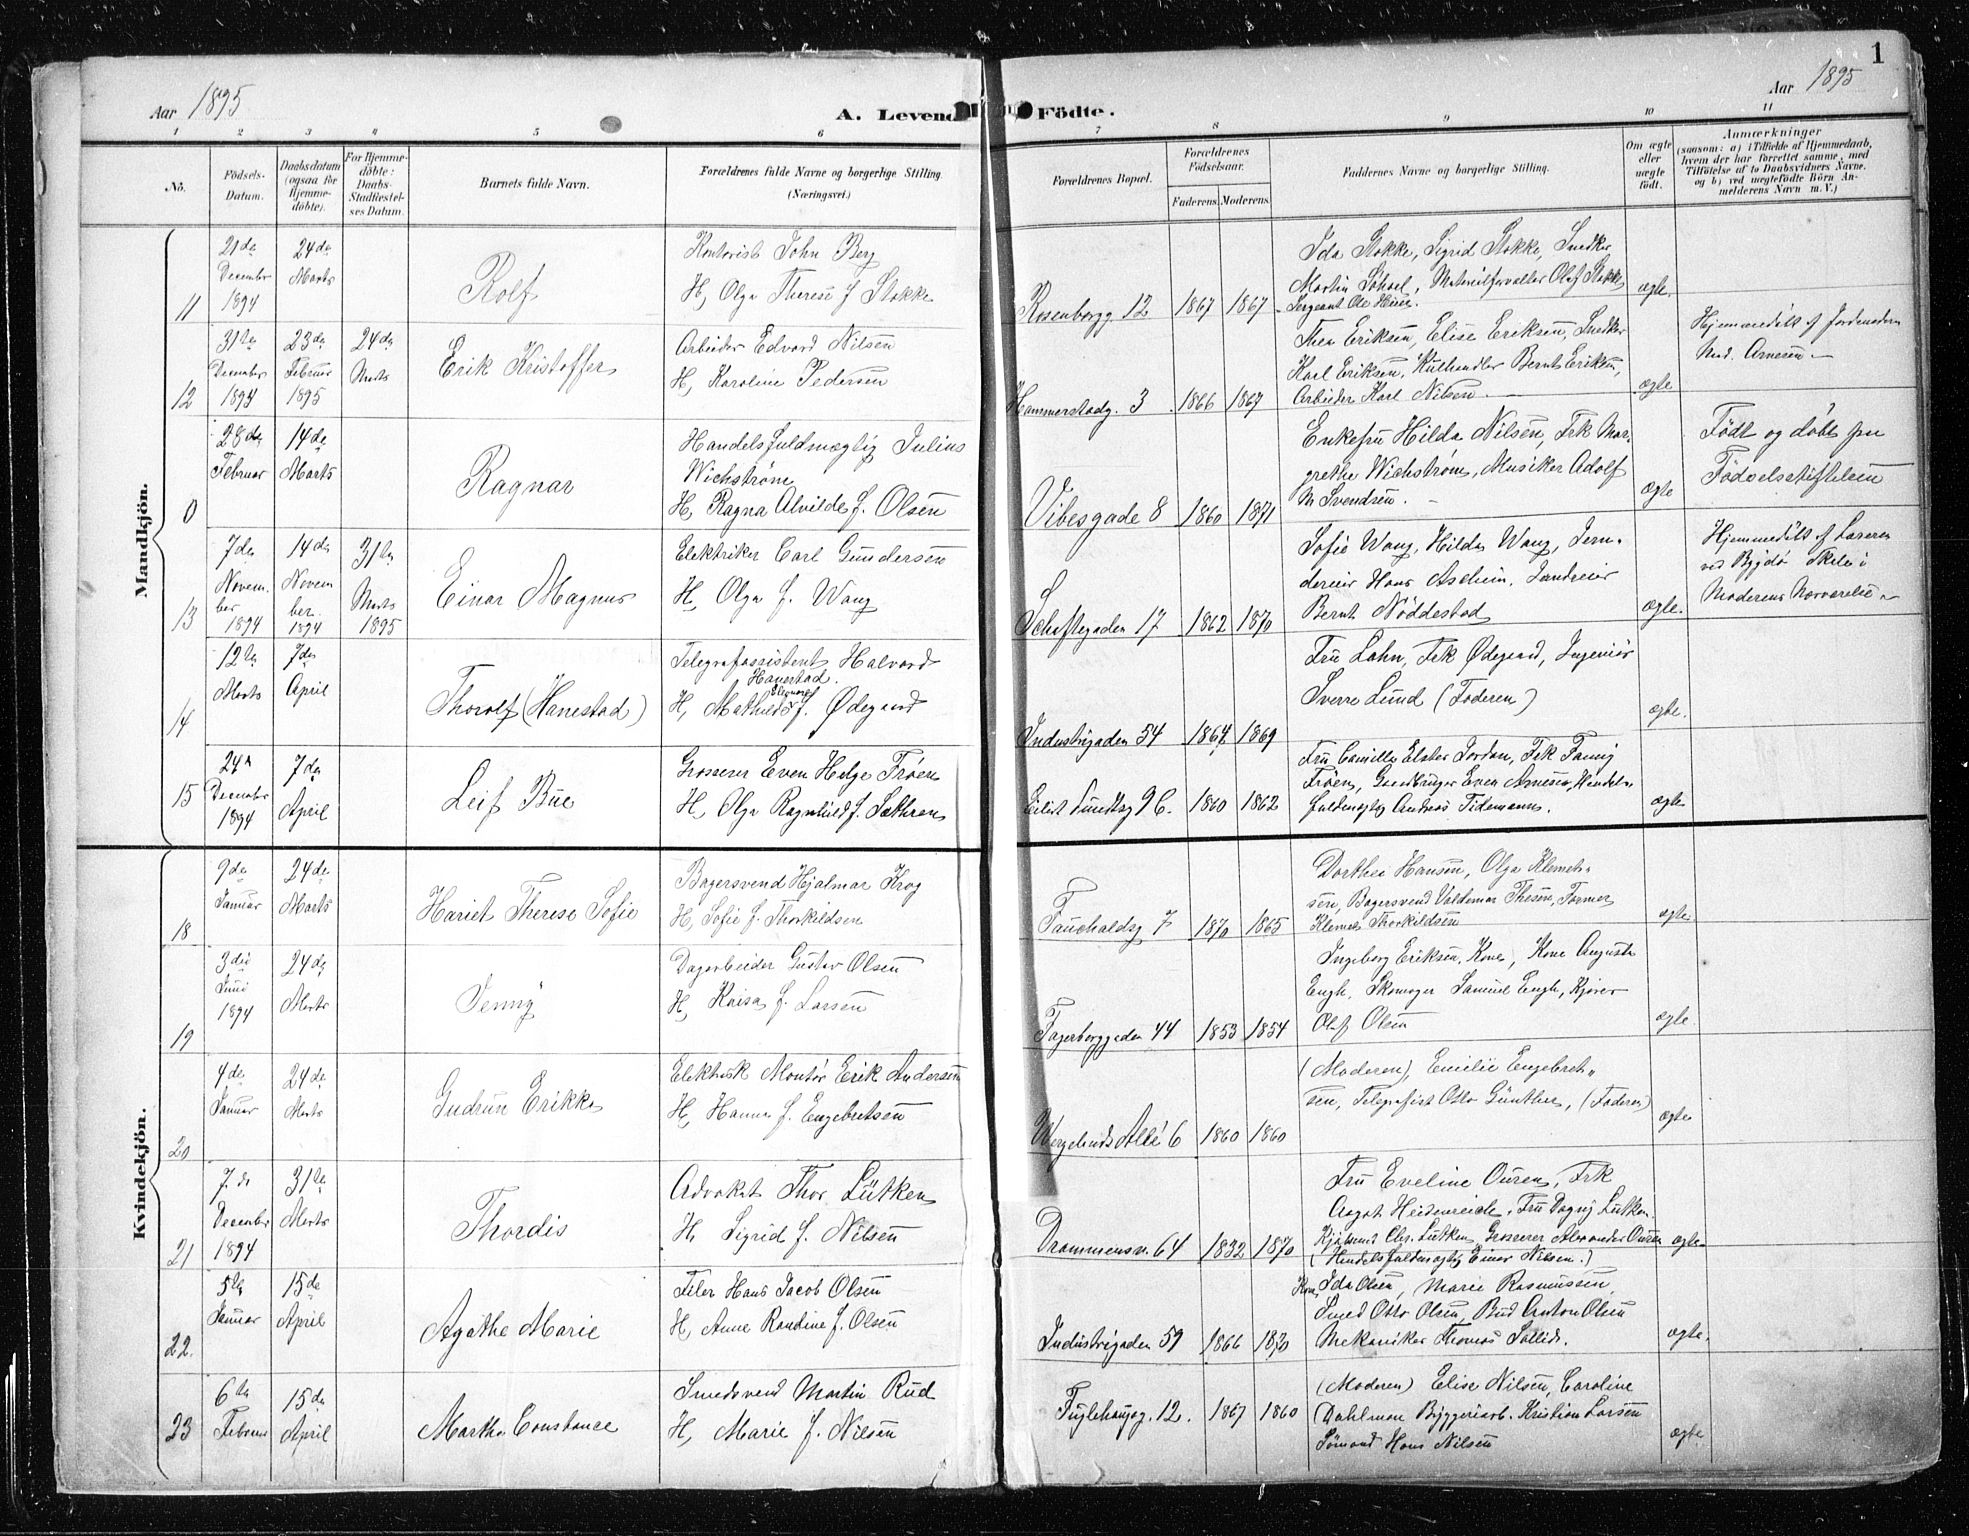 1
Aar 1895
A. Levende Födte.
Aar 1895
1 2 3 4 5 6 7 8 9 10 11
No.
Födsels-Datum.
Daabsdatum (ogsaa for Hjemme-döbte).
For Hjemme-döbte: Daabs-Stadfæstel-ses Datum.
Barnets fulde Navn.
Forældrenes fulde Navne og borgerlige Stilling. (Næringsvei.)
Forældrenes Bopæl.
Forældrenes Födselsaar.
Faderens. Moderens.
Faddernes Navne og borgerlige Stilling.
Om ægte eller uægte födt.
Anmærkninger
(saasom: a) i Tilfælde af Hjemmedaab, hvem der har forrettet samme, med Tilföielse af to Daabsvidners Navne, og b) ved uægtefödte Börn An-melderens Navn m. V.)
Mandkjön.
11
21de December 1894
24de Marts
Rolf
Kontorist John Berg
H, Olga Therese f Stokke
Rosenborgg. 12
1867 1867
Ida Stokke, Sigrid Stokke, Snedker
Martin , Materialforvalter Olaf Stokke
Sergeant Ole
ægte.
12
31te December 1894
23de Februar 1895
24de Marts
Erik Kristoffer
Arbeider Edvard Nilsen
H, Karoline Pedersen
Hammerstadg. 3
1866 1867
Thea Eriksen, Elise Eriksen, Snedker
Karl Eriksen, Kulhandler Bernt Eriksen,
Arbeider Karl Nilsen. –
ægte
Hjemmedöbt af Jordemoderen
Mad. Arnesen –
0
28de Februar
14de Marts
Ragnar
Handelsfuldmægtig Julius
Wichstrøm
H, Ragna Alvilde f. Olsen
Vibesgade 8
1860 1871
Enkefru Hilda Nilsen, Frk Mar-
grethe Wichstrøm, Musiker Adolf
M Svendsen. –
ægte
Födt og döbt paa
Födselsstiftelsen
13
7de November 1894
14de November 1894
31te Marts 1895
Einar Magnus
Elektriker Carl Gundersen
H, Olga f. Wang
Schaftegaden 17
1862 1870
Sofie Wang, Hilda Wang, Jern-
dreier Hans Ascheim, Jerndreier
Bernt Nöddestad
ægte.
Hjemmedöbt af Læreren
ved Bygdø Skole i
Moderens Nærværelse –
14
12te Marts
7de April
Thorolf (Hanestad)
Telegrafassistent Halvard
Hanestad.
H, Mathilde Eleonore f. Ødegaard
Industrigaden 54
1864 1869
Fru Lahn, Frk Ødegaard, Ingeniør
Sverre Lund (Faderen)
ægte.
15
24de December 1894
7de April
Leif Bue
Grosserer Even Helge Frøen
H, Olga Ragnhild f. Sæthren
Eilert Sundtsg 9 C.
1860 1862
Fru Camilla Elster Jordan, Frk Fanny
Frøen, Gaardbruger Even Arnesen, Handels-
fuldmægtig Andreas Tidemann.
ægte
Kvindekjön.
18
9de Januar
24de Marts
Hariet Therese Sofie
Bagersvend Hjalmar Krog
H, Sofie f. Thorkildsen
Fauchaldsg 7
1870 1865
Dorthea Hansen, Olga Klemet-
sen, Bagersvend Valdemar Thesen, Former
Klemet Thorkildsen
ægte
19
3die Juni 1894
24de Marts
Jenny
Dagarbeider Gustav Olsen
H, Kaisa f. Larsen
Fagerborggaden 44
1853 1854
Ingeborg Eriksen, Kone, Kone Augusta
Engh, Skomager Samuel Engh, Kjører
Olaf Olsen
ægte.
20
4de Januar
24de Marts
Gudrun Erikka
Elektrisk Montør Erik Andersen
H, Hanna f. Engebretsen
Wergelands Allé 6
1860 1860
(Moderen), Emilie Engebret-
sen, Telegrafist Otto Günther, (Faderen)
ægte
21
7de December 1894
31te Marts
Thordis
Advokat Thor Lütken
H, Sigrid f. Nilsen
Drammensv. 64
1832 1870
Fru Eveline Ouren, Frk
Aagot Heidenreich, Fru Dagny Lütken.
Kjøbmand Chr. Lütken, Grosserer Alexander Ouren
(Handelsfuldmægtig Einar Nilsen.)
ægte
22.
5te Januar
15de April
Agathe Marie
Filer Hans Jacob Olsen
H, Anne Randine f. Olsen
Industrigaden 59
1866 1870
Kone Ida Olsen, Marie Rasmussen
Smed Otto Olsen, Bud Anton Olsen
Mekaniker Thomas Sollid.
ægte.
23
6te Februar
15de April
Martha Constance
Smedsvend Martin Rud
H, Marie f. Nilsen
Fuglehaugg. 12.
1867 1860
(Moderen) Elise Nilsen, Caroline
Dahlman, Byggeriarb. Kristian Larsen
Sømand Hans Nilsen
ægte